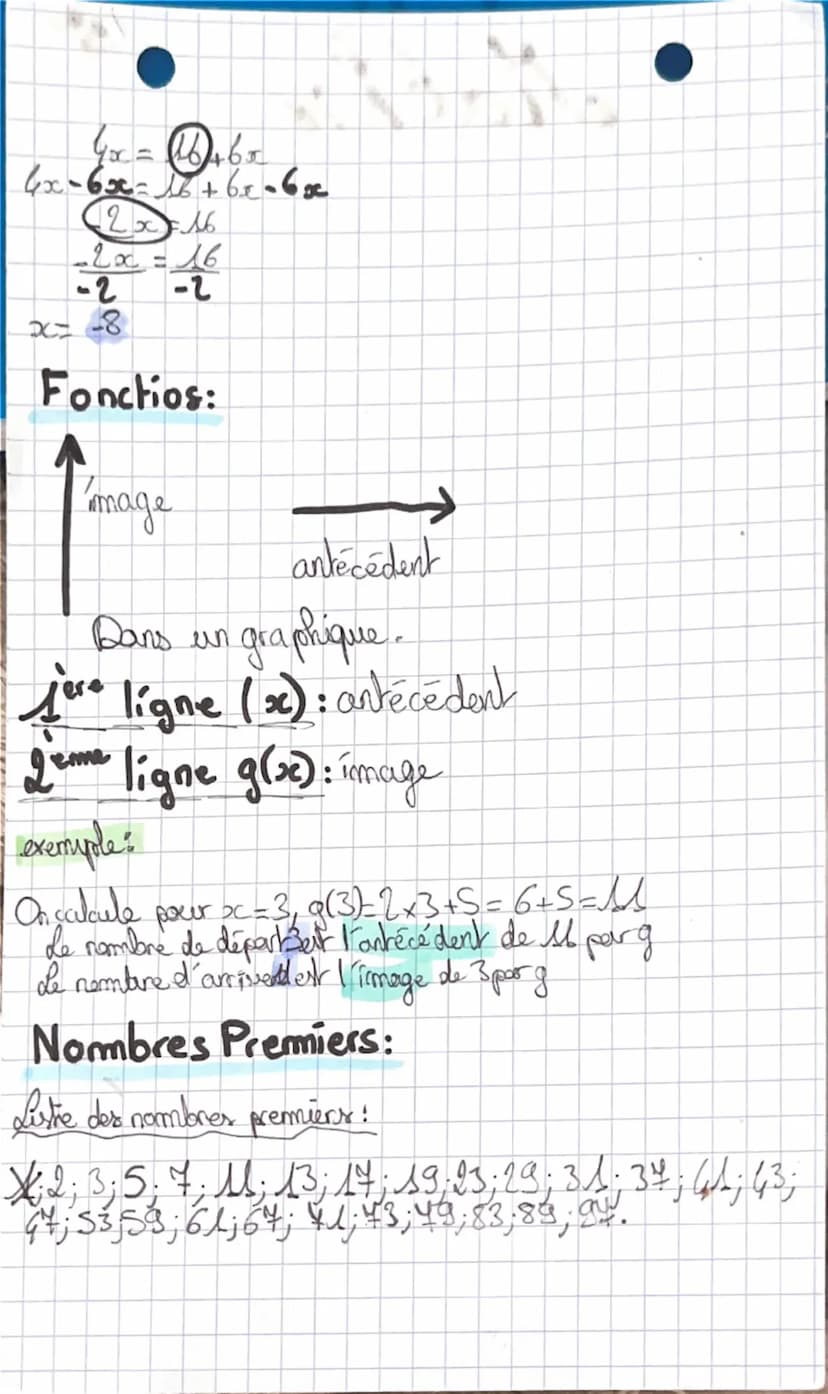 4x = 16 + 6x
4x - 6x = 16 + 6x - 6x
-2x = 16
-2x = 16
-2 -2
x = -8
Fonctios:
image
antécédent
Dans un graphique.
1ère ligne (x) : antécédent
2ème ligne g(x) : image
exemple :
On calcule pour x = 3, g(3) = 2 x 3 + 5 = 6 + 5 = 11
Le nombre de départ 3 est l'antécédent de 11 par g
Le nombre d'arrivé 11 est l'image de 3 par g
Nombres Premiers:
Liste des nombres premiers :
1; 2; 3; 5; 7; 11; 13; 17; 19; 23; 29; 31; 37; 41; 43;
47; 53; 59; 61; 67; 71; 73; 79; 83; 89; 97.